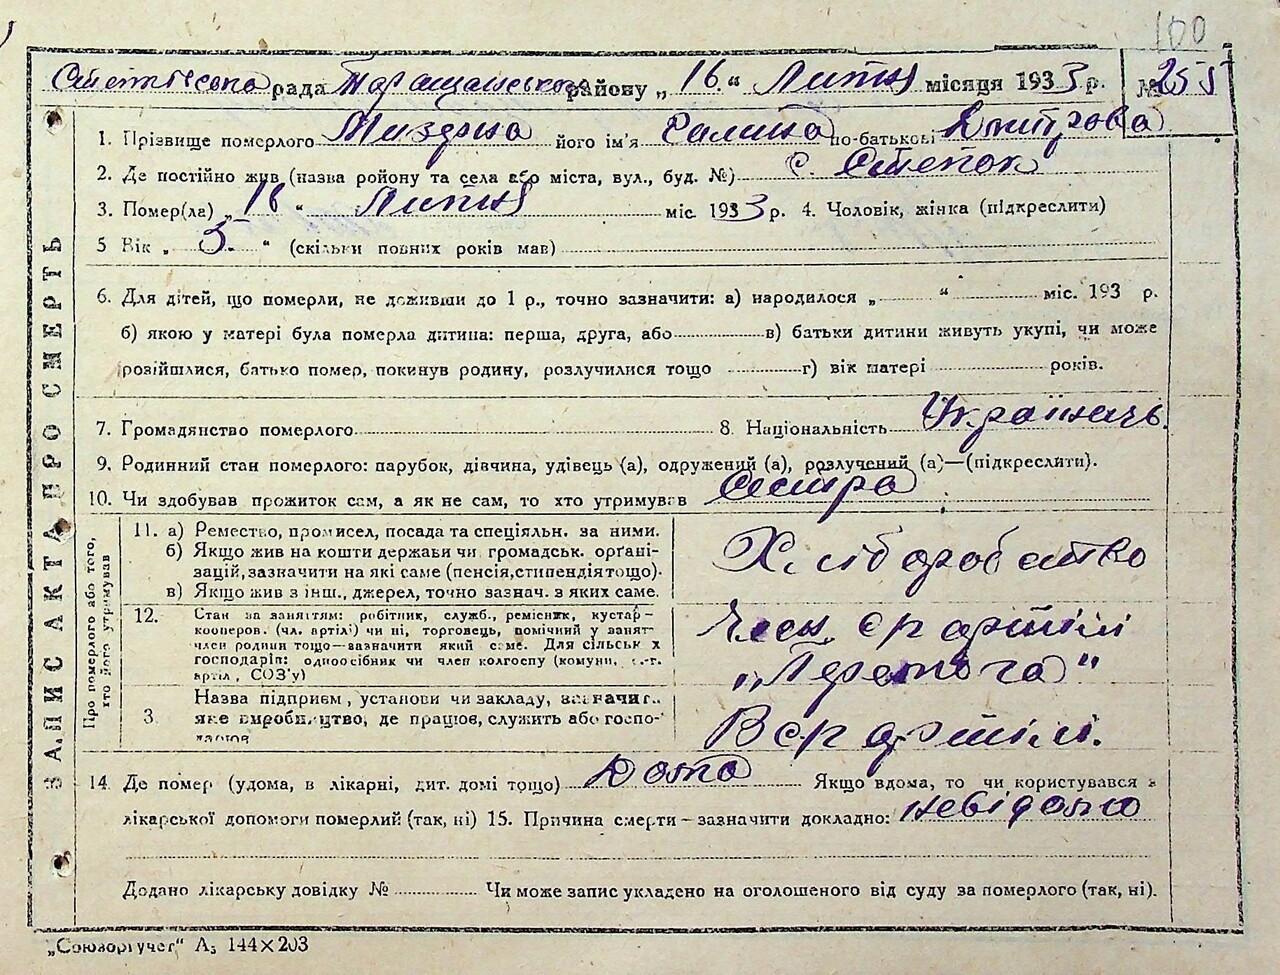 100
Степківська рада Таращанського району „16“ Липня місяця 1933 р. № 255
1. Прізвище померлого Миздрина його ім'я Галина по-батькові Дмитрова
2. Де постійно жив (назва району та села або міста, вул., буд. №) с. Степок
3. Помер(ла) „16“ Липня міс. 1933 р. 4. Чоловік, жінка (підкреслити)
5 Вік „3.“ (скільки повних років мав)
6. Для дітей, що померли, не доживши до 1 р., точно зазначити: а) народилося „ “ міс. 193 р.
б) якою у матері була померла дитина: перша, друга, або в) батьки дитини живуть укупі, чи може
розійшлися, батько помер, покинув родину, розлучилися тощо г) вік матері років.
7. Громадянство померлого 8. Національність Українець
9. Родинний стан померлого: парубок, дівчина, удівець (а), одружений (а), розлучений (а)—(підкреслити).
10. Чи здобував прожиток сам, а як не сам, то хто утримував Сестра
ЗАПИС АКТА ПРО СМЕРТЬ
Про померлого або того, хто його утримував
11. а) Ремество, промисел, посада та спеціяльн. за ними.
б) Якщо жив на кошти держави чи громадськ. орґані-
зацій, зазначити на які саме (пенсія, стипендія тощо).
в) Якщо жив з інш. джерел, точно зазнач. з яких саме.
Хліборобство
12. Стан за заняттям: робітник, служб., ремісник, кустар-
кооперов. (чл. артілі) чи ні, торговець, помічний у занят-
член родини тощо—зазначити який саме. Для сільськ х
господарів: одноосібник чи член колгоспу (комуни, с.-г.
артіл, СОЗ'у)
Член с.г артілі
„Перемога“
3. Назва підприєм, установи чи закладу, зазначит..
яке виробництво, де працюв, служить або госпо-
В с.г артілі.
14. Де помер (удома, в лікарні, дит. домі тощо) Дома Якщо вдома, то чи користувався з
лікарської допомоги померлий (так, ні) 15. Причина смерти—зазначити докладно: невідомо
Додано лікарську довідку № Чи може запис укладено на оголошеного від суду за померлого (так, ні).
„Союзоргучет“ А₃ 144×203